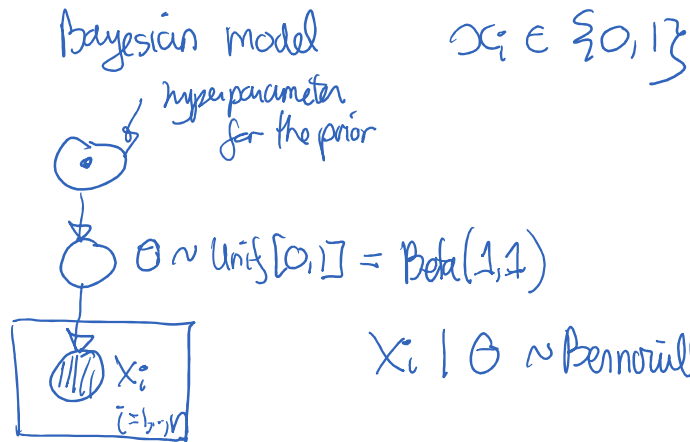 Bayesian model
x_i ∈ {0,1}
hyperparameter
for the prior
θ ~ Unif[0,1] = Beta(1,1)
X_i | θ ~ Bernoul
X_i
i=1,..,n